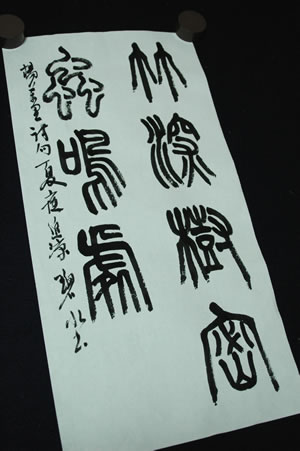 竹深樹密
蟲鳴處
楊萬里詩句夏夜追涼 碧水書